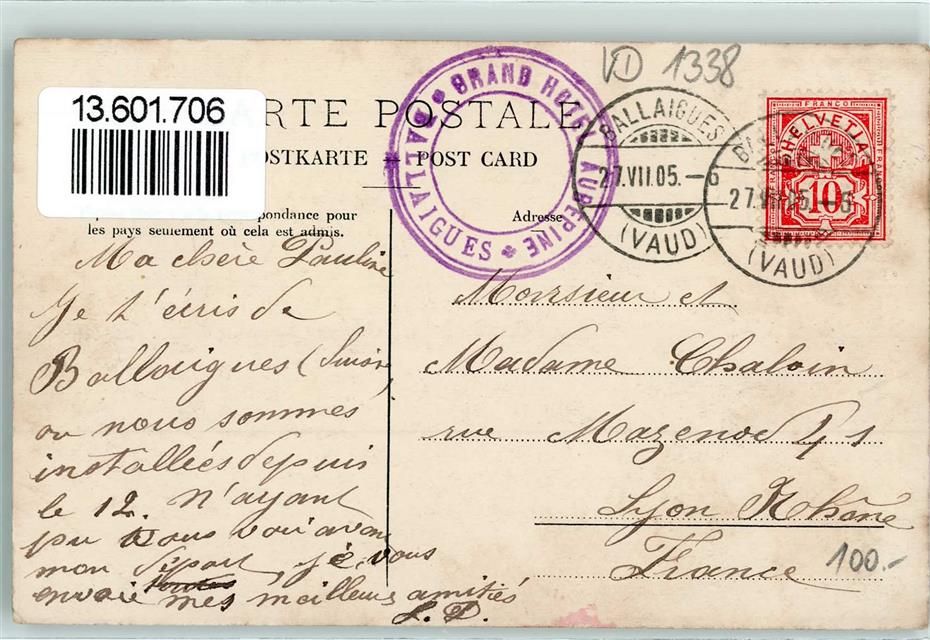 13.601.706
VD 1338
CARTE POSTALE
POSTKARTE — POST CARD
GRAND HOTEL AUBEPINE
BALLAIGUES
BALLAIGUES
27.VII.05.–6
(VAUD)
27.VII.05.–6
(VAUD)
FRANCO
HELVETIA
10
pondance pour
les pays seulement où cela est admis.
Adresse
Ma chère Pauline
Je t'écris de
Ballaigues (Suisse)
ou nous sommes
installées depuis
le 12. N'ayant
pu vous voir avan
mon départ, je vous
envoie mes meilleures amitiés
L. D.
Monsieur et
Madame Chaloin
rue Mazenod 41
Lyon Rhône
France
100.-